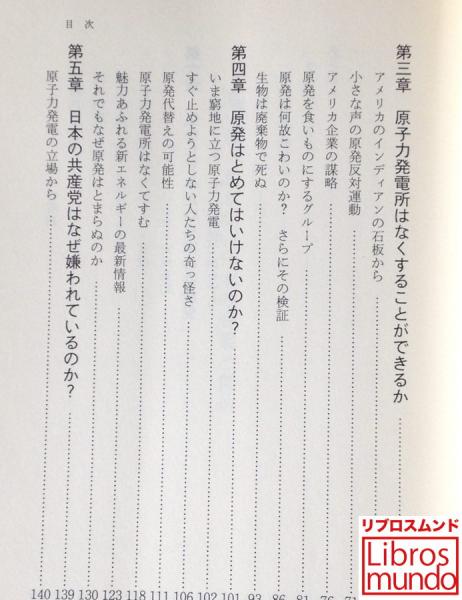 目次
第三章 原子力発電所はなくすることができるか
アメリカのインディアンの石板から
小さな声の原発反対運動 71
アメリカ企業の謀略 76
原発を食いものにするグループ 81
原発は何故こわいのか? さらにその検証 86
生物は廃棄物で死ぬ 93
第四章 原発はとめてはいけないのか? 101
いま窮地に立つ原子力発電 102
すぐ止めようとしない人たちの奇っ怪さ 106
原発代替えの可能性 111
原子力発電所はなくてすむ 118
魅力あふれる新エネルギーの最新情報 123
それでもなぜ原発はとまらぬのか 130
第五章 日本の共産党はなぜ嫌われているのか? 139
原子力発電の立場から 140
リブロスムンド
Libros
mundo